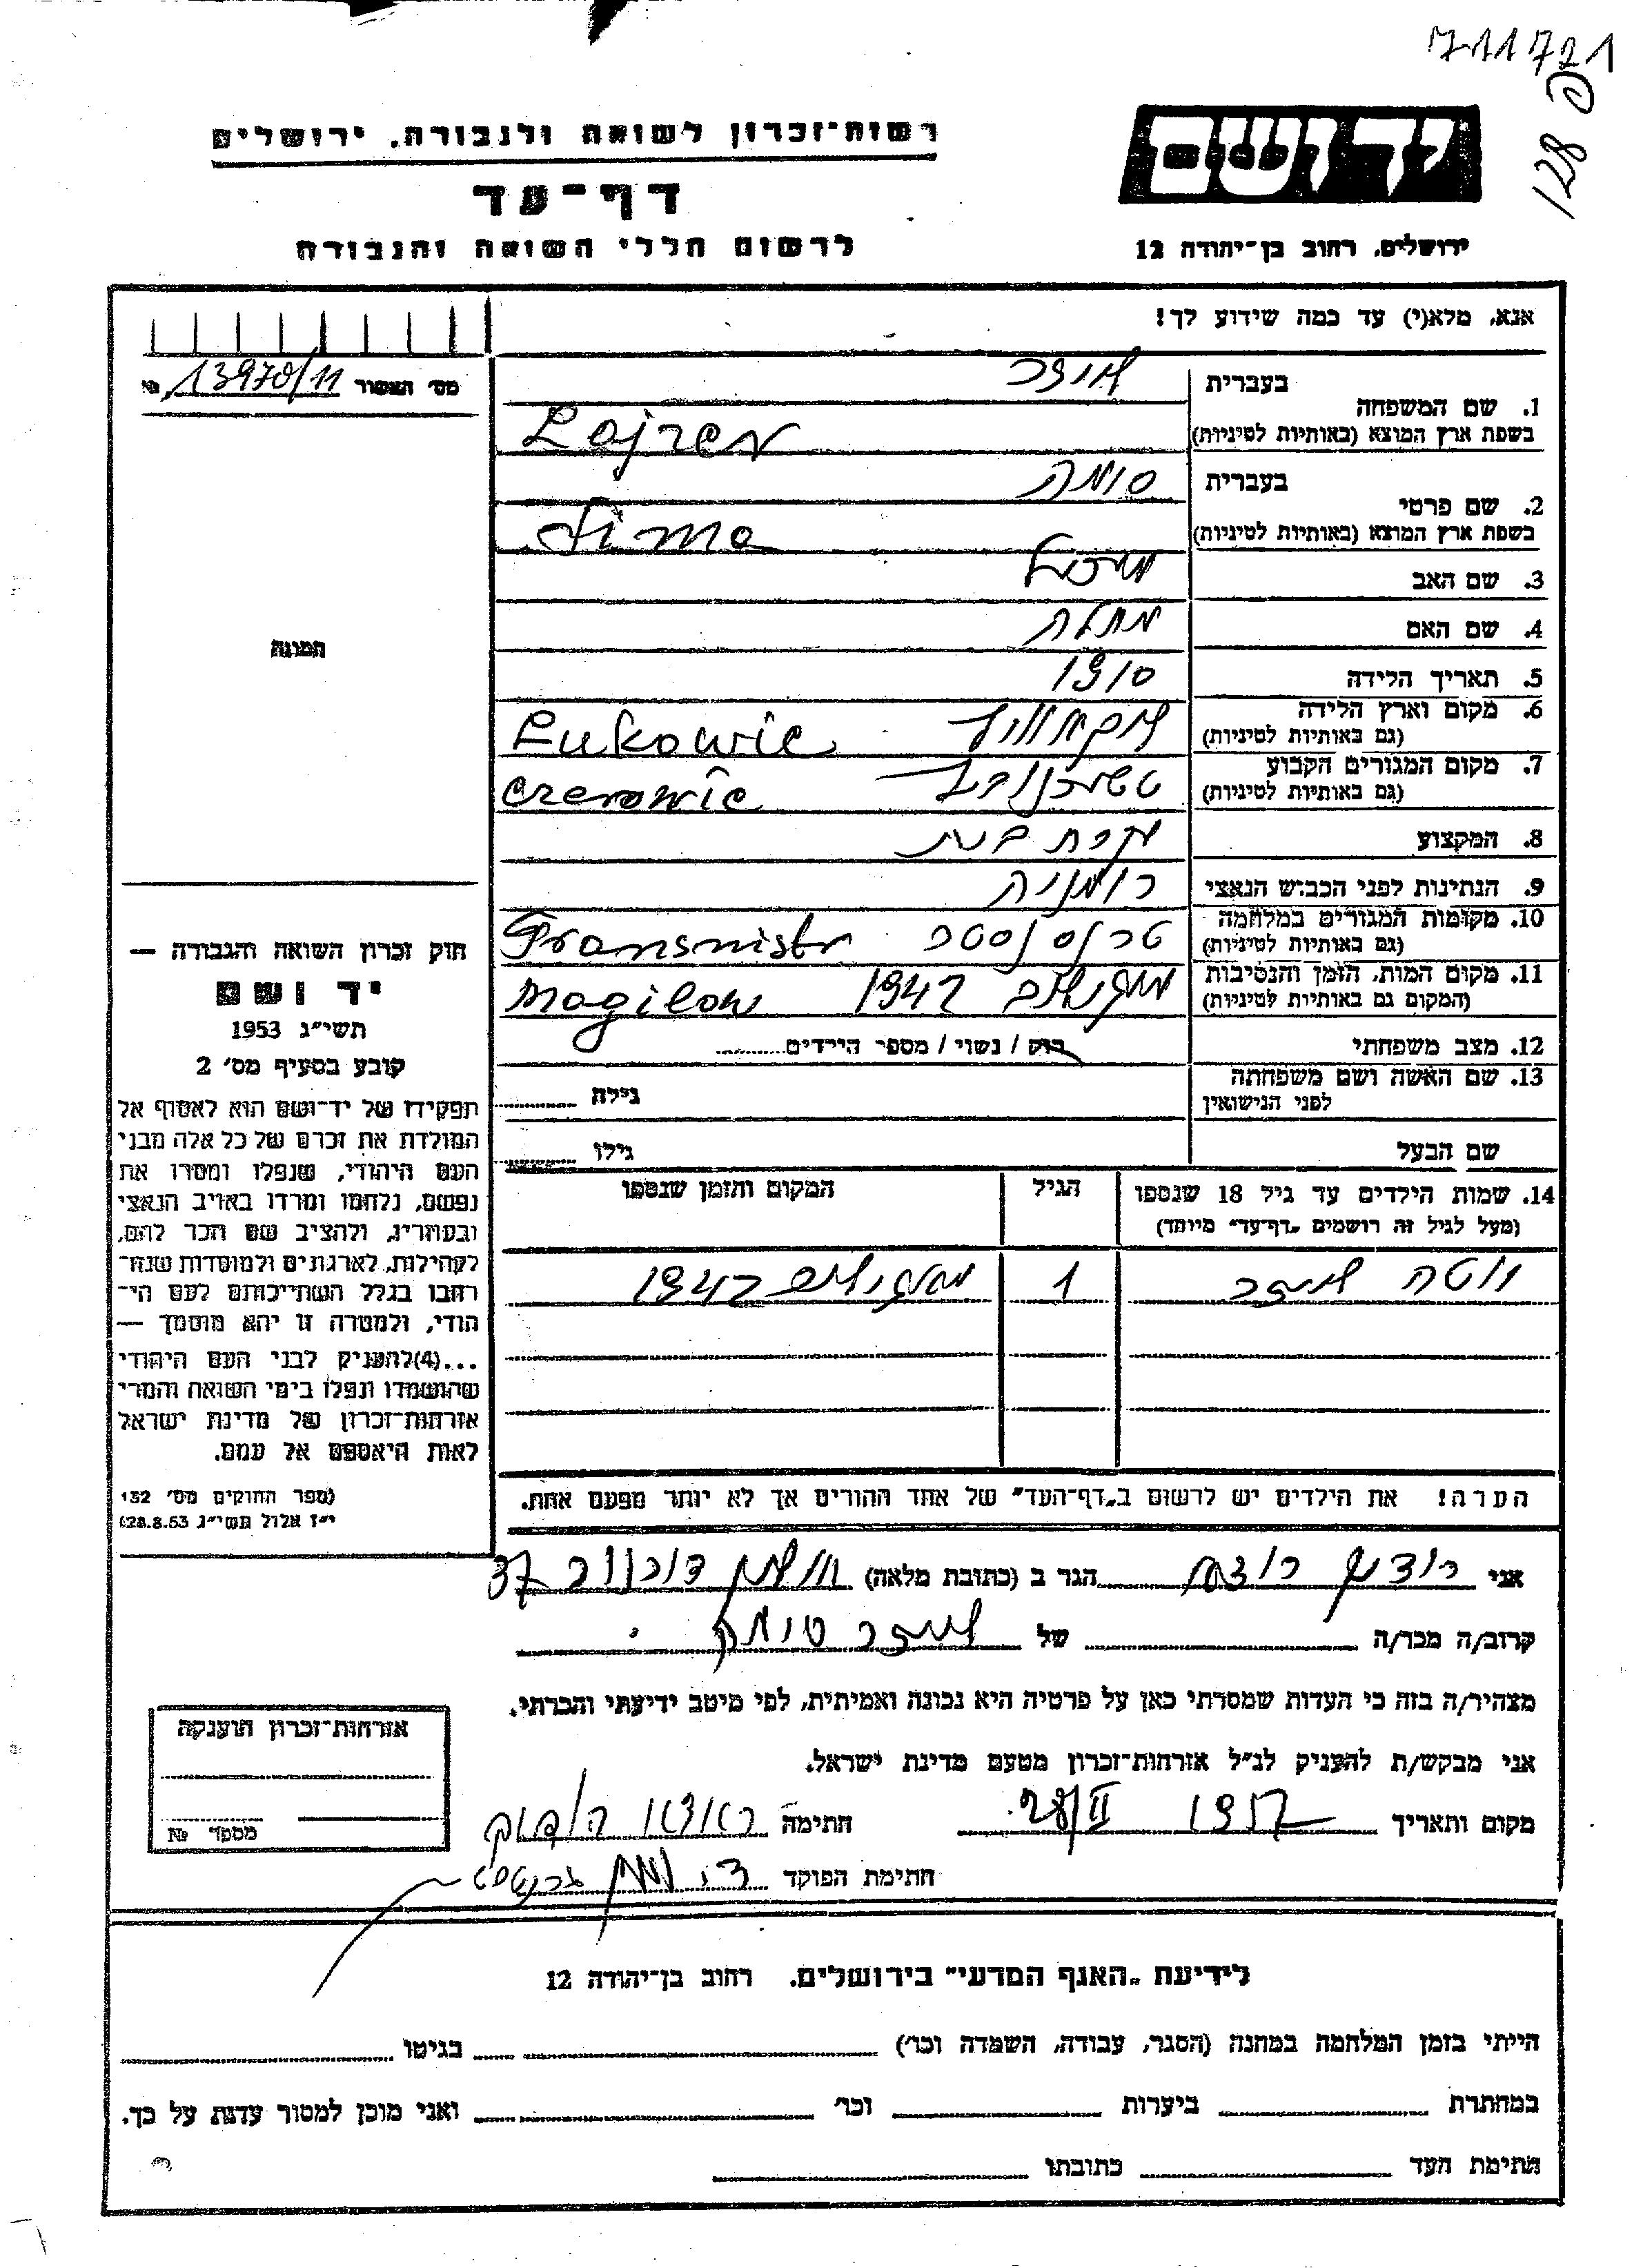 711721
128 פ
יד ושם
ירושלים, רחוב בן־יהודה 12
רשות־זכרון לשואה ולגבורה, ירושלים
דף־עד
לרשום חללי השואה והגבורה
אנא, מלא(י) עד כמה שידוע לך!
מס׳ האשור 13970/11 №
תמונה
חוק זכרון השואה והגבורה —
יד ושם
תשי״ג 1953
קובע בסעיף מס׳ 2
תפקידו של יד־ושם הוא לאסוף אל
המולדת את זכרם של כל אלה מבני
העם היהודי, שנפלו ומסרו את
נפשם, נלחמו ומרדו באויב הנאצי
ובעוזריו, ולהציב שם הכר להם,
לקהילות, לארגונים ולמוסדות שנח־
רבו בגלל השתייכותם לעם הי־
הודי, ולמטרה זו יהא מוסמך —
...(4)להעניק לבני העם היהודי
שהושמדו ונפלו בימי השואה והמרי
אזרחות־זכרון של מדינת ישראל
לאות היאספם אל עמם.
(ספר החוקים מס׳ 132
י״ז אלול תשי״ג 28.8.53)
1. שם המשפחה בעברית לויזר
בשפת ארץ המוצא (באותיות לטיניות) Lojzer
2. שם פרטי בעברית סימה
בשפת ארץ המוצא (באותיות לטיניות) Sima
3. שם האב
4. שם האם
5. תאריך הלידה 1910
6. מקום וארץ הלידה
(גם באותיות לטיניות) Lukowic
7. מקום המגורים הקבוע
(גם באותיות לטיניות) Czernowic
8. המקצוע עקרת בית
9. הנתינות לפני הכבוש הנאצי רומניה
10. מקומות המגורים במלחמה טרנסניסטר
(גם באותיות לטיניות) Transnistr
11. מקום המות, הזמן והנסיבות מוגילוב 1942
(המקום גם באותיות לטיניות) Mogilow
12. מצב משפחתי רוק / נשוי / מספר הילדים
13. שם האשה ושם משפחתה
לפני הנישואין גילה
שם הבעל גילו
14. שמות הילדים עד גיל 18 שנספו הגיל המקום והזמן שנספו
(מעל לגיל זה רושמים „דף־עד״ מיוחד)
לויזר 1 מוגילוב 1942
הערה! את הילדים יש לרשום ב„דף־העד״ של אחד ההורים אך לא יותר מפעם אחת.
אני הגר ב (כתובת מלאה) 37
קרוב/ה מכר/ה של לויזר סימה
מצהיר/ה בזה כי העדות שמסרתי כאן על פרטיה היא נכונה ואמיתית, לפי מיטב ידיעתי והכרתי.
אני מבקש/ת להעניק לנ״ל אזרחות־זכרון מטעם מדינת ישראל.
מקום ותאריך 28/II 1957 חתימה
חתימת הפוקד
אזרחות־זכרון הוענקה
מספר №
לידיעת „האגף המדעי״ בירושלים, רחוב בן־יהודה 12
הייתי בזמן המלחמה במחנה (הסגר, עבודה, השמדה וכו׳) בגיטו
במחתרת ביערות וכו׳ ואני מוכן למסור עדות על כך.
חתימת העד כתובתו